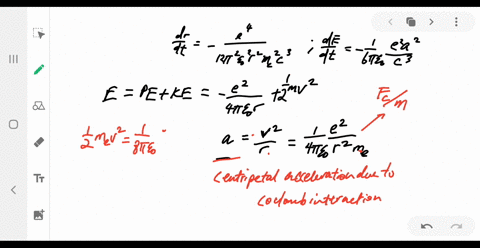 dr/dt = - e^4/(12π²ε₀²r²m_e²c³) ; dE/dt = - 1/(6πε₀) e²a²/c³
E = PE + KE = - e²/(4πε₀r) + 1/2 mv²
F_c/m
1/2 m_e v² = 1/(8πε₀)
a = v²/r = 1/(4πε₀) e²/(r²m_e)
Centripetal acceleration due to
coclomb interaction
Tт